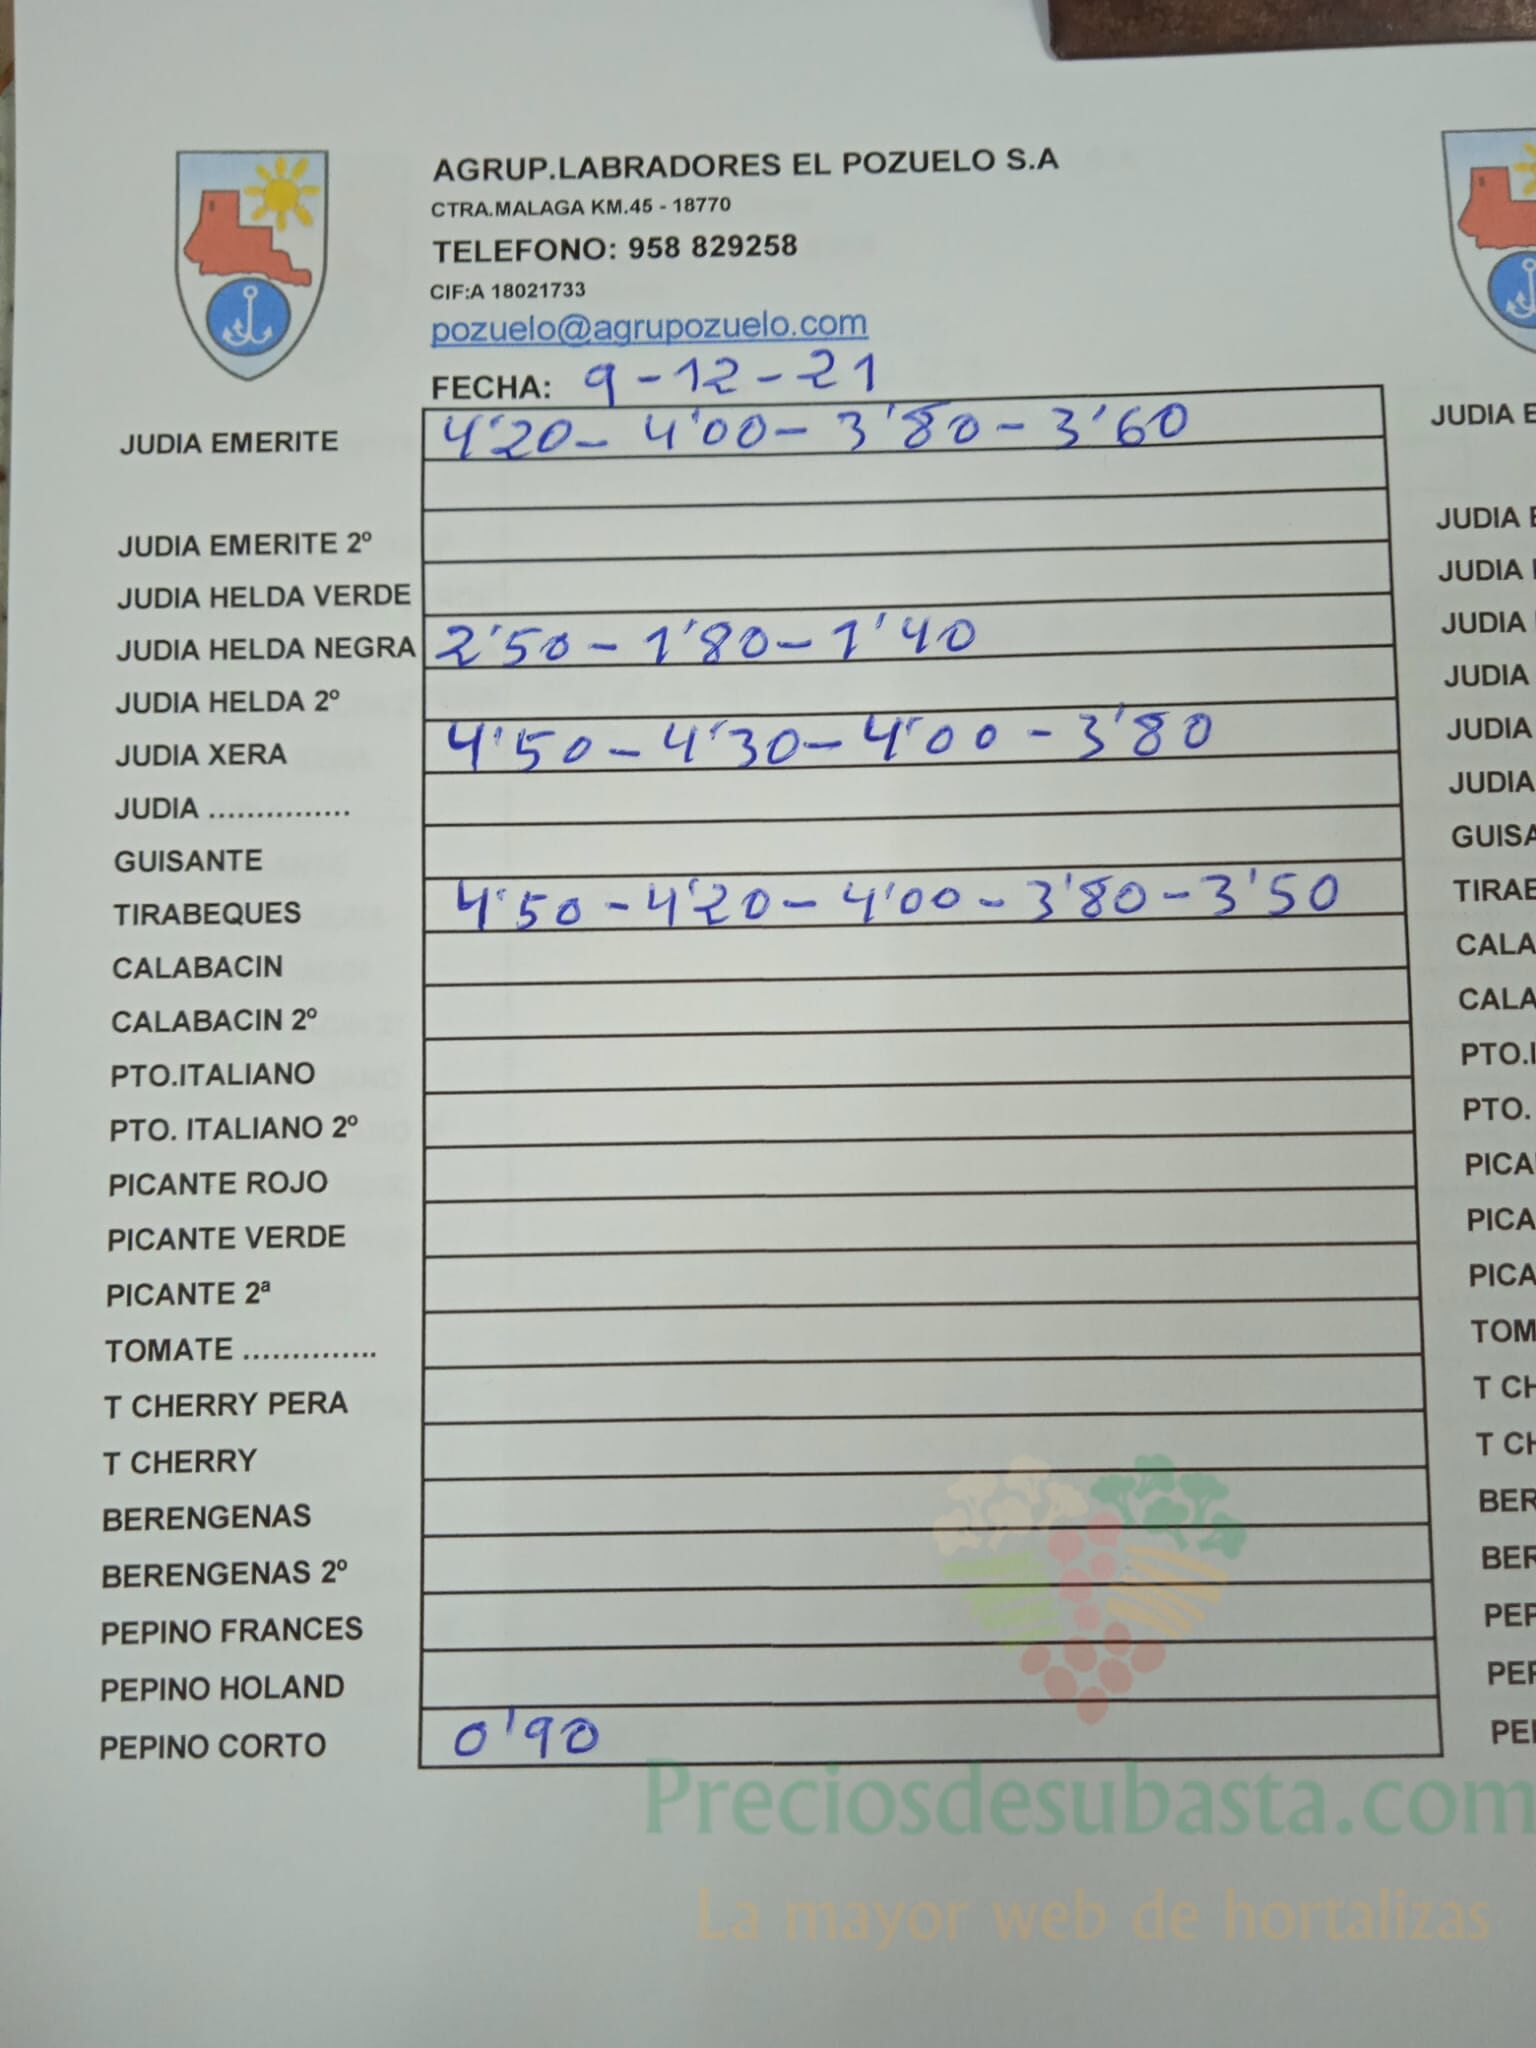 AGRUP.LABRADORES EL POZUELO S.A
CTRA.MALAGA KM.45 - 18770
TELEFONO: 958 829258
CIF:A 18021733
pozuelo@agrupozuelo.com
FECHA: 9-12-21
JUDIA EMERITE 4'20- 4'00- 3'80- 3'60
JUDIA EMERITE 2º
JUDIA HELDA VERDE
JUDIA HELDA NEGRA 2'50- 1'80- 1'40
JUDIA HELDA 2º
JUDIA XERA 4'50- 4'30- 4'00- 3'80
JUDIA ...............
GUISANTE
TIRABEQUES 4'50-4'20-4'00-3'80-3'50
CALABACIN
CALABACIN 2º
PTO.ITALIANO
PTO. ITALIANO 2º
PICANTE ROJO
PICANTE VERDE
PICANTE 2ª
TOMATE ..............
T CHERRY PERA
T CHERRY
BERENGENAS
BERENGENAS 2º
PEPINO FRANCES
PEPINO HOLAND
PEPINO CORTO 0'90
JUDIA E
JUDIA E
JUDIA
JUDIA
JUDIA
JUDIA
JUDIA
GUISA
TIRABE
CALA
CALA
PTO.I
PTO.
PICA
PICA
PICA
TOM
T CH
T CH
BER
BER
PEP
PEP
PEP
Preciosdesubasta.com
La mayor web de hortalizas